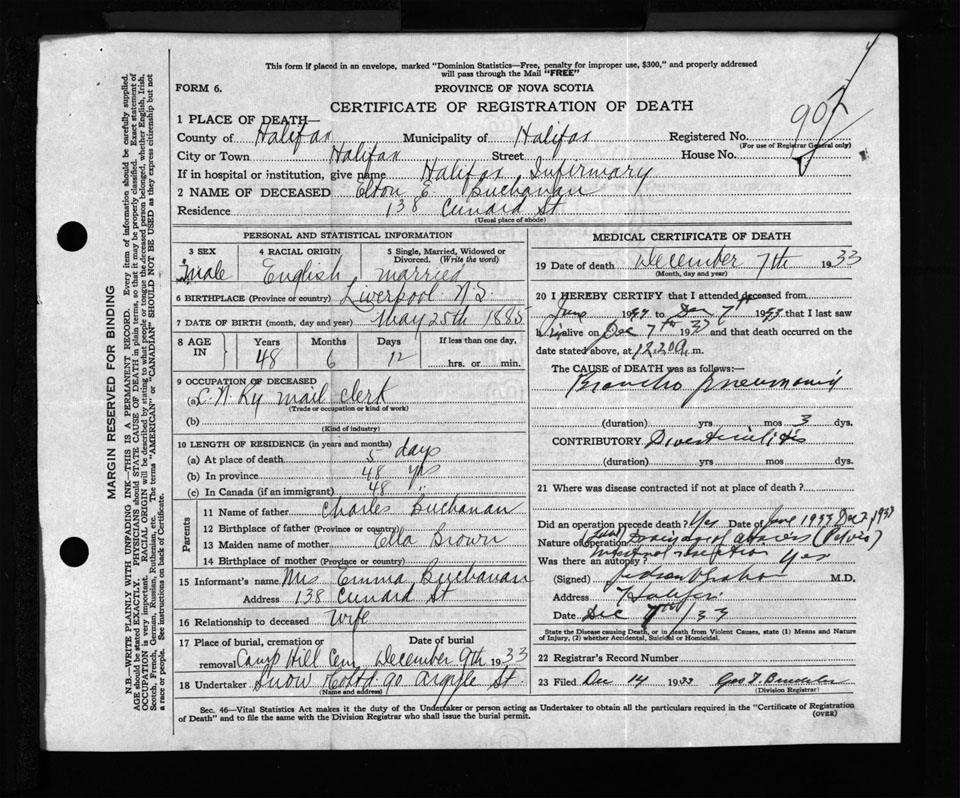 This form if placed in an envelope, marked "Dominion Statistics—Free, penalty for improper use, $300," and properly addressed
will pass through the Mail "FREE"
FORM 6.
PROVINCE OF NOVA SCOTIA
CERTIFICATE OF REGISTRATION OF DEATH
1 PLACE OF DEATH—
County of Halifax Municipality of Halifax Registered No. 907
(For use of Registrar General only)
City or Town Halifax Street House No.
If in hospital or institution, give name Halifax Infirmary
2 NAME OF DECEASED Elton E. Buchanan
Residence 138 Cunard St
(Usual place of abode)
PERSONAL AND STATISTICAL INFORMATION
3 SEX 4 RACIAL ORIGIN 5 Single, Married, Widowed or
Divorced. (Write the word)
male English married
6 BIRTHPLACE (Province or country) Liverpool N.S.
7 DATE OF BIRTH (month, day and year) May 25th 1885
8 AGE IN Years Months Days If less than one day,
48 6 12 hrs. or min.
9 OCCUPATION OF DECEASED
(a) C.N. Ry mail clerk
(Trade or occupation or kind of work)
(b)
(Kind of industry)
10 LENGTH OF RESIDENCE (in years and months)
(a) At place of death 5 days
(b) In province 48 yrs
(c) In Canada (if an immigrant) 48 "
Parents
11 Name of father Charles Buchanan
12 Birthplace of father (Province or country)
13 Maiden name of mother Ella Brown
14 Birthplace of mother (Province or country)
15 Informant's name Mrs Emma Buchanan
Address 138 Cunard St
16 Relationship to deceased Wife
17 Place of burial, cremation or Date of burial
removal Camp Hill Cem. December 9th 1933
18 Undertaker Snow & Co Ltd 90 Argyle St.
(Name and address)
MEDICAL CERTIFICATE OF DEATH
19 Date of death December 7th 1933
(Month, day and year)
20 I HEREBY CERTIFY that I attended deceased from
June 1933 to Dec 7th 1933 that I last saw
h im alive on Dec 7th 1933 and that death occurred on the
date stated above, at 12.20 a. m.
The CAUSE of DEATH was as follows:—
Broncho pneumonia
(duration) yrs mos 3 dys.
CONTRIBUTORY Diverticulitis
(duration) yrs mos dys.
21 Where was disease contracted if not at place of death?
Did an operation precede death? Yes Date of June 1933 Dec 2 1933
Nature of operation drainage of abscess (Pelvis)
intestinal
Was there an autopsy? Yes
(Signed) M.D.
Address Halifax
Date Dec 7th/33
State the Disease causing Death, or in death from Violent Causes, state (1) Means and Nature of Injury, (2) whether Accidental, Suicidal or Homicidal.
22 Registrar's Record Number
23 Filed Dec 14 1933 Geo
(Division Registrar)
Sec. 46—Vital Statistics Act makes it the duty of the Undertaker or person acting as Undertaker to obtain all the particulars required in the "Certificate of Registration
of Death" and to file the same with the Division Registrar who shall issue the burial permit. (OVER)
MARGIN RESERVED FOR BINDING
N.B.—WRITE PLAINLY WITH UNFADING INK—THIS IS A PERMANENT RECORD. Every item of information should be carefully supplied.
AGE should be stated EXACTLY. PHYSICIANS should STATE CAUSE OF DEATH in plain terms, so that it may be properly classified. Exact statement of
OCCUPATION is very important. RACIAL ORIGIN will be described by stating to what people or tongue the deceased person belonged, whether English, Irish,
Scotch, French, German, Russian, Ruthenian, etc. The terms "AMERICAN" or "CANADIAN" SHOULD NOT BE USED as they express citizenship but not
a race or people. See instructions on back of Certificate.